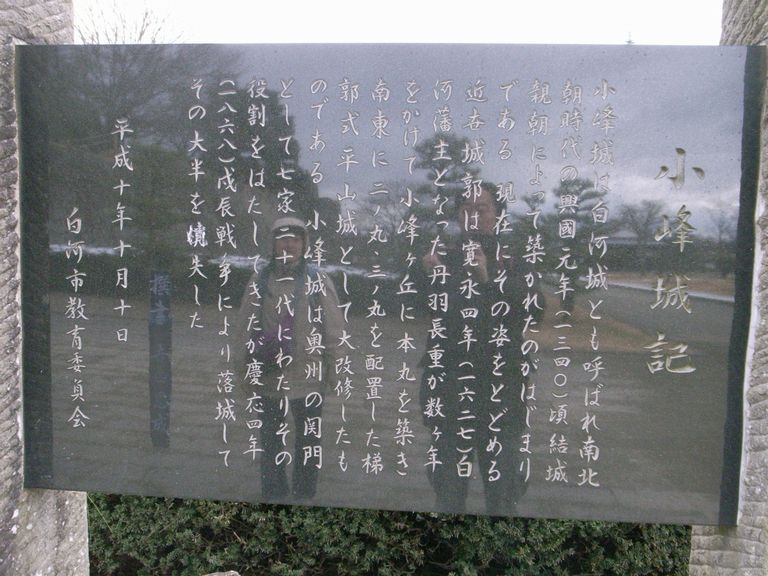 小峰城記
小峰城は白河城とも呼ばれ南北
朝時代の興國元年(一三四〇)頃結城
親朝によって築かれたのがはじまり
である 現在にその姿をとどめる
近世城郭は寛永四年(一六二七)白
河藩主となった丹羽長重が数ヶ年
をかけて小峰ヶ丘に本丸を築き
南東に二ノ丸・三ノ丸を配置した梯
郭式平山城として大改修したも
のである 小峰城は奥州の関門
として七家二十一代にわたりその
役割をはたしてきたが慶応四年
(一八六八)戊辰戦争により落城して
その大半を焼失した
平成十年十月十日
白河市教育委員会